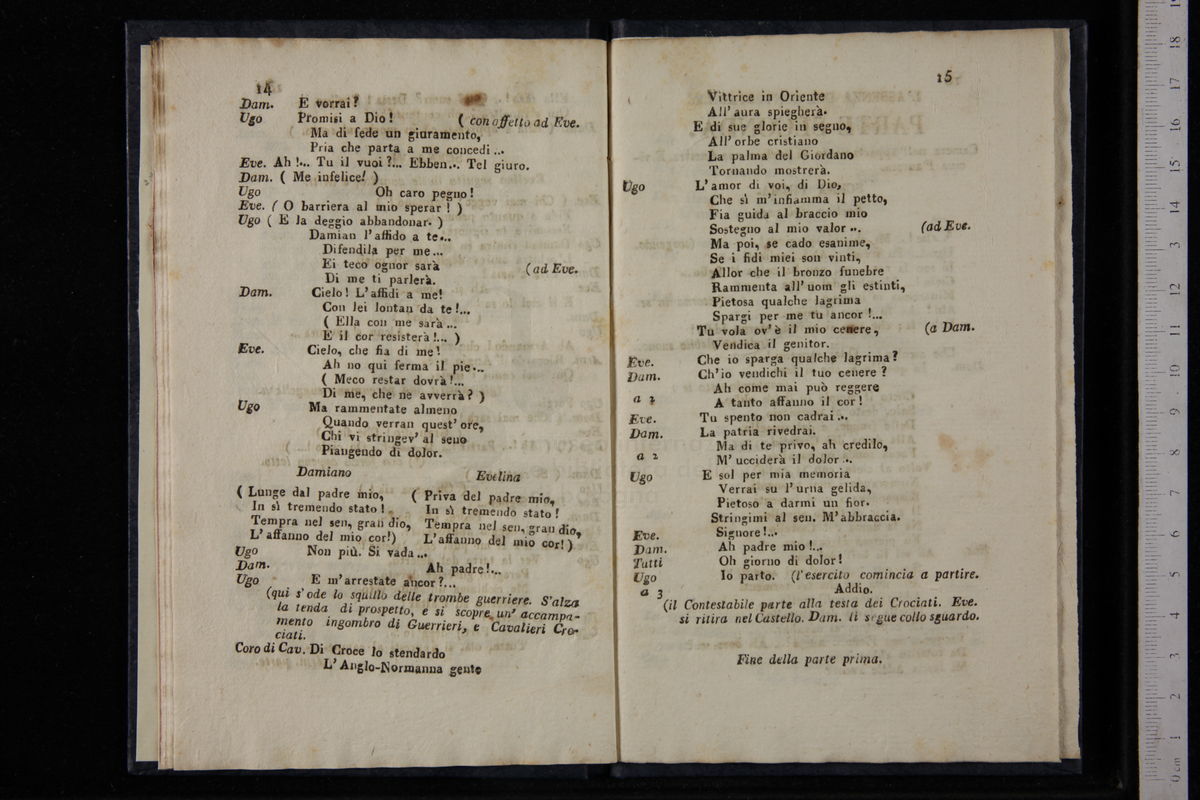 14
Dam. E vorrai?
Ugo Promisi a Dio! (con affetto ad Eve.
Ma di fede un giuramento,
Pria che parta a me concedi...
Eve. Ah!... Tu il vuoi?... Ebben... Tel giuro.
Dam. ( Me infelice! )
Ugo Oh caro pegno!
Eve. ( O barriera al mio sperar! )
Ugo ( E la deggio abbandonar. )
Damian l'affido a te...
Difendila per me...
Ei teco ognor sarà (ad Eve.
Di me ti parlerà.
Dam. Cielo! L'affidi a me!
Con lei lontan da te!...
( Ella con me sarà...
E il cor resisterà!... )
Eve. Cielo, che fia di me!
Ah no qui ferma il piè...
( Meco restar dovrà!...
Di me, che ne avverrà? )
Ugo Ma rammentate almeno
Quando verran quest' ore,
Chi vi stringev' al seno
Piangendo di dolor.
Damiano Evelina
( Lunge dal padre mio, ( Priva del padre mio,
In sì tremendo stato! In sì tremendo stato!
Tempra nel sen, gran dio, Tempra nel sen, gran dio,
L'affanno del mio cor!) L'affanno del mio cor!)
Ugo Non più. Si vada...
Dam. Ah padre!...
Ugo E m'arrestate ancor?...
(qui s'ode lo squillo delle trombe guerriere. S'alza
la tenda di prospetto, e si scopre un' accampa-
mento ingombro di Guerrieri, e Cavalieri Cro-
ciati.
Coro di Cav. Di Croce lo stendardo
L'Anglo-Normanna gente
15
Vittrice in Oriente
All' aura spiegherà.
E di sue glorie in segno,
All' orbe cristiano
La palma del Giordano
Tornando mostrerà.
Ugo L'amor di voi, di Dio,
Che sì m'infiamma il petto,
Fia guida al braccio mio
Sostegno al mio valor... (ad Eve.
Ma poi, se cado esanime,
Se i fidi miei son vinti,
Allor che il bronzo funebre
Rammenta all' uom gli estinti,
Pietosa qualche lagrima
Spargi per me tu ancor!...
Tu vola ov'è il mio cenere, (a Dam.
Vendica il genitor.
Eve. Che io sparga qualche lagrima?
Dam. Ch'io vendichi il tuo cenere?
Ah come mai può reggere
a 2 A tanto affanno il cor!
Eve. Tu spento non cadrai...
Dam. La patria rivedrai.
Ma di te privo, ah credilo,
a 2 M' ucciderà il dolor...
Ugo E sol per mia memoria
Verrai su l'urna gelida,
Pietoso a darmi un fior.
Stringimi al sen. M'abbraccia.
Eve. Signore!...
Dam. Ah padre mio!...
Tutti Oh giorno di dolor!
Ugo Io parto. (l'esercito comincia a partire.
a 3 Addio.
(il Contestabile parte alla testa dei Crociati. Eve.
si ritira nel Castello. Dam. li segue collo sguardo.
Fine della parte prima.